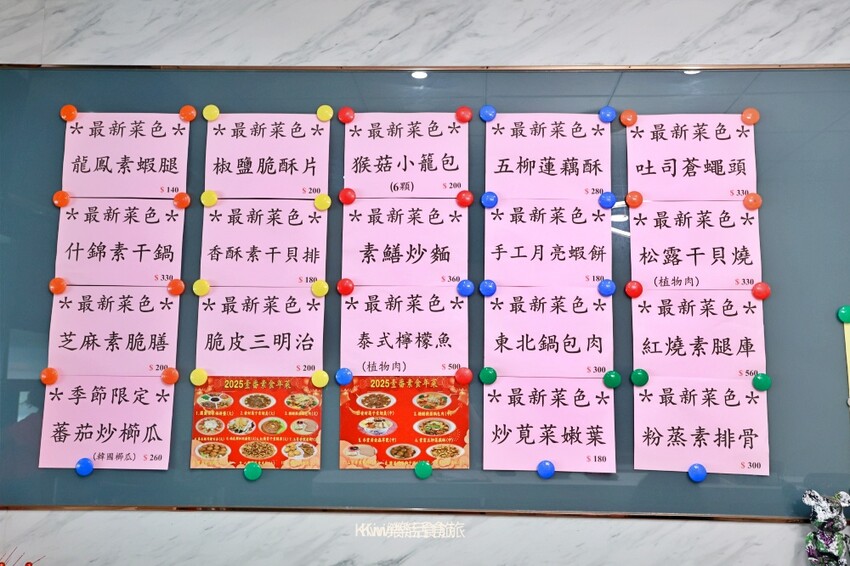 ＊最新菜色＊
龍鳳素蝦腿
$140
＊最新菜色＊
椒鹽脆酥片
$200
＊最新菜色＊
猴菇小籠包
(6顆) $200
＊最新菜色＊
五柳蓮藕酥
$280
＊最新菜色＊
吐司蒼蠅頭
$330
＊最新菜色＊
什錦素干鍋
$330
＊最新菜色＊
香酥素干貝排
$180
＊最新菜色＊
素鱔炒麵
$360
＊最新菜色＊
手工月亮蝦餅
$180
＊最新菜色＊
松露干貝燒
(植物肉) $330
＊最新菜色＊
芝麻素脆膳
$200
＊最新菜色＊
脆皮三明治
$200
＊最新菜色＊
泰式檸檬魚
(植物肉) $500
＊最新菜色＊
東北鍋包肉
$300
＊最新菜色＊
紅燒素腿庫
$560
＊季節限定＊
蕃茄炒櫛瓜
(韓國櫛瓜) $260
2025壹番素食年菜
2025壹番素食年菜
＊最新菜色＊
炒莧菜嫩葉
$180
＊最新菜色＊
粉蒸素排骨
$300